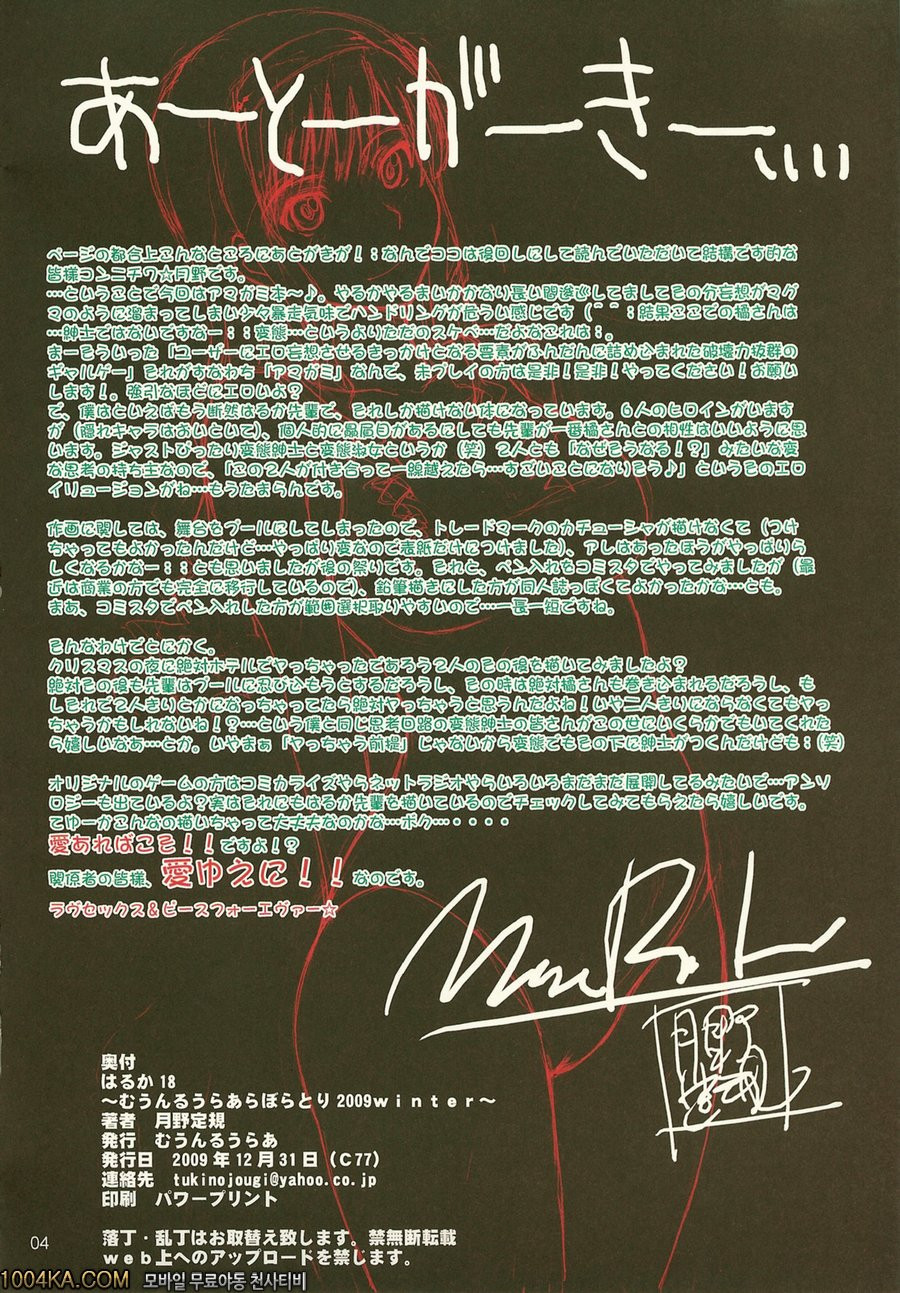 あーとーがーきー....
ページの都合上こんなところにあとがきが！；なんでココは後回しにして読んでいただいて結構です的な
皆様コンニチワ☆月野です。
…ということで今回はアマガミ本～♪。やるかやるまいかかなり長い間逡巡してましてその分妄想がマグ
マのように溜まってしまい少々暴走気味でハンドリングが危うい感じです（＾＾；結果ここでの橘さんは
…紳士ではないですなー；；変態…というよりただのスケベーだよなこれは；。
まーそういった「ユーザーにエロ妄想させるきっかけとなる要素がふんだんに詰め込まれた破壊力抜群の
ギャルゲー」それがすなわち「アマガミ」なんで、未プレイの方は是非！是非！やってください！お願い
します！。強引なほどにエロいよ？
で、僕はといえばもう断然はるか先輩で、それしか描けない体になっています。6人のヒロインがいます
が（隠れキャラはおいといて）、個人的に贔屓目があるにしても先輩が一番橘さんとの相性はいいように思
います。ジャストぴったり変態紳士と変態淑女というか（笑）2人とも「なぜそうなる！？」みたいな変
な思考の持ち主なので、「この2人が付き合って一線越えたら…すごいことになりそう♪」というそのエロ
イリュージョンがね…もうたまらんです。
作画に関しては、舞台をプールにしてしまったので、トレードマークのカチューシャが描けなくて（つけ
ちゃってもよかったんだけど…やっぱり変なので表紙だけにつけました）、アレはあったほうがやっぱりら
しくなるかなー；；とも思いましたが後の祭りです。それと、ペン入れをコミスタでやってみましたが（最
近は商業の方でも完全に移行しているので）、鉛筆描きにした方が同人誌っぽくてよかったかな…とも。
まあ、コミスタでペン入れした方が範囲選択取りやすいので…一長一短ですね。
そんなわけでとにかく。
クリスマスの夜に絶対ホテルでヤっちゃったであろう2人のその後を描いてみましたよ？
絶対その後も先輩はプールに忍びこもうとするだろうし、その時は絶対橘さんも巻きこまれるだろうし、も
しそれで2人きりとかになっちゃってたら絶対ヤっちゃうと思うんだよね！いや二人きりにならなくてもヤっ
ちゃうかもしれないね！？…という僕と同じ思考回路の変態紳士の皆さんがこの世にいくらかでもいてくれた
ら嬉しいなあ…とか。いやまぁ「ヤっちゃう前提」じゃないから変態でもその下に紳士がつくんだけども；(笑)
オリジナルのゲームの方はコミカライズやらネットラジオやらいろいろまだまだ展開してるみたいで…アンソ
ロジーも出ているよ？実はそれにもはるか先輩を描いているのでチェックしてみてもらえたら嬉しいです。
てゆーかこんなの描いちゃって大丈夫なのかな…ボク…・・・・
愛あればこそ！！ですよ！？
関係者の皆様、愛ゆえに！！なのです。
ラヴセックス＆ピースフォーエヴァー☆
奥付
はるか18
～むうんるうらあらぼらとり2009winter～
著者　月野定規
発行　むうんるうらあ
発行日　2009年12月31日（C77）
連絡先　tukinojougi@yahoo.co.jp
印刷　パワープリント
落丁・乱丁はお取替え致します。禁無断転載
web上へのアップロードを禁じます。
04
1004KA.COM 모바일 무료야동 천사티비